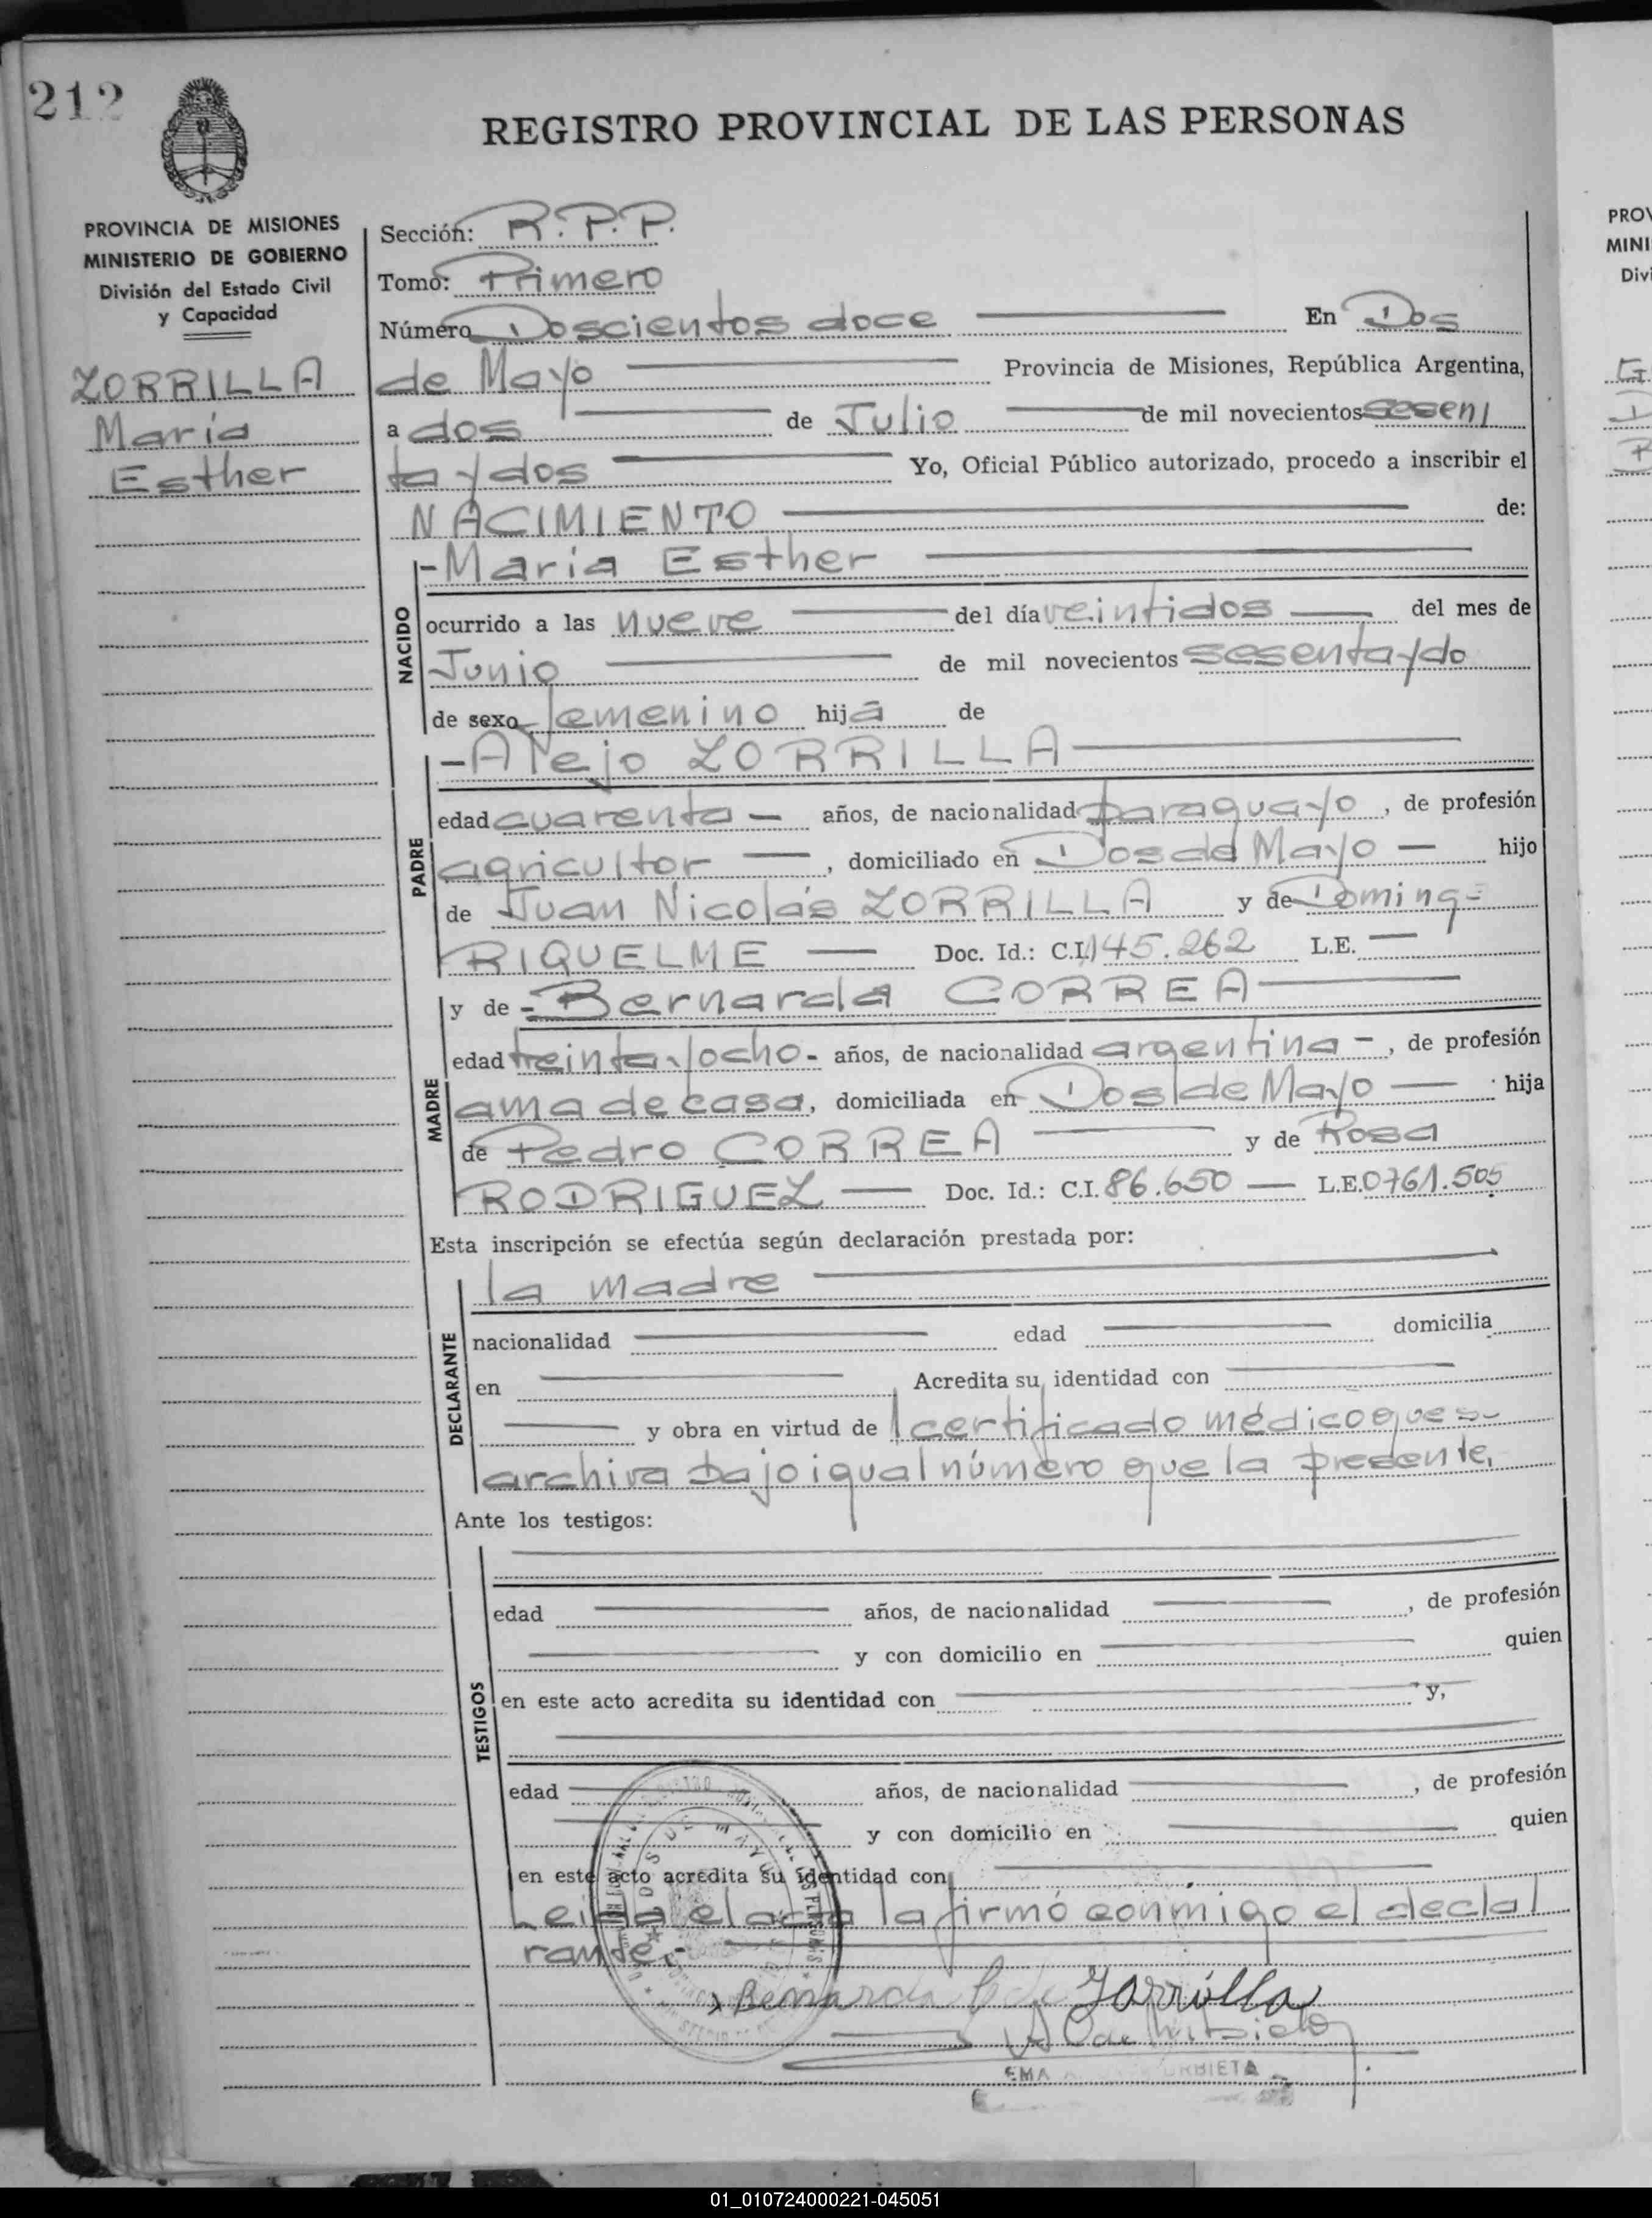 212
REGISTRO PROVINCIAL DE LAS PERSONAS
PROVINCIA DE MISIONES
MINISTERIO DE GOBIERNO
División del Estado Civil
y Capacidad
ZORRILLA
María
Esther
Sección: R.P.P.
Tomo: Primero
Número Doscientos doce En Dos
de Mayo Provincia de Misiones, República Argentina,
a dos de Julio de mil novecientos sesen
ta y dos Yo, Oficial Público autorizado, procedo a inscribir el
NACIMIENTO de:
NACIDO
-María Esther
ocurrido a las nueve del día veintidos del mes de
Junio de mil novecientos sesenta y do
de sexo femenino hija de
PADRE
-Alejo ZORRILLA
edad cuarenta - años, de nacionalidad paraguayo, de profesión
agricultor, domiciliado en Dos de Mayo - hijo
de Juan Nicolás ZORRILLA y de Doming
RIQUELME Doc. Id.: C.I. 145.262 L.E. —
MADRE
y de - Bernarda CORREA
edad treinta y ocho - años, de nacionalidad argentina -, de profesión
ama de casa, domiciliada en Dos de Mayo — hija
de Pedro CORREA y de Rosa
RODRIGUEZ — Doc. Id.: C.I. 86.650 — L.E. 0761.505
Esta inscripción se efectúa según declaración prestada por:
DECLARANTE
la madre
nacionalidad edad domicilia
en Acredita su identidad con
y obra en virtud de certificado médico que se
archiva bajo igual número que la presente,
Ante los testigos:
TESTIGOS
edad años, de nacionalidad , de profesión
y con domicilio en quien
en este acto acredita su identidad con y,
edad años, de nacionalidad , de profesión
y con domicilio en quien
en este acto acredita su identidad con
Leída el acta la firmó conmigo el decla
rante.-
Bernarda de Zorrilla
EMA URBIETA
PROV
MINI
Divi
01_010724000221-045051